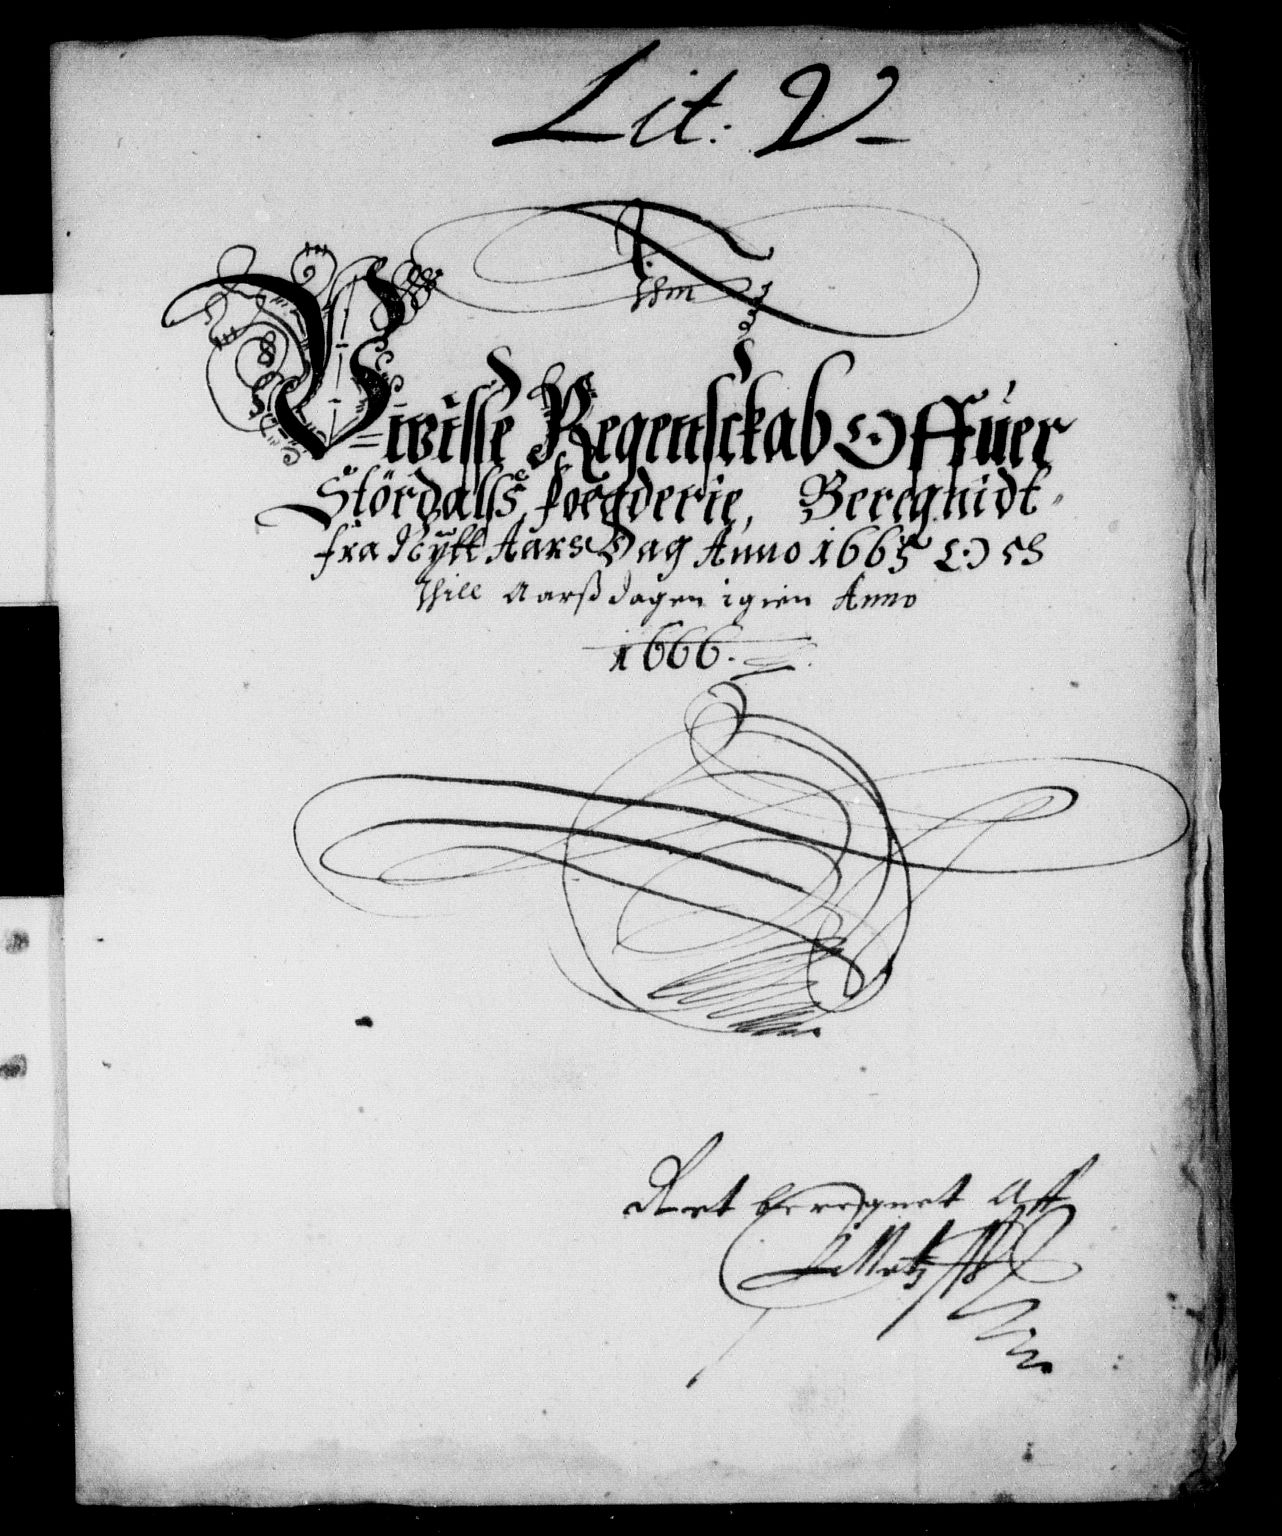 Lit: V
Vwisse Regenschab Offuer
Stördalss foegderie, Beregnidt
fra Nytt Aars Dag Anno 1665 Och
thill Aarß dagen igien Anno
1666.
Ret beregnet Aff